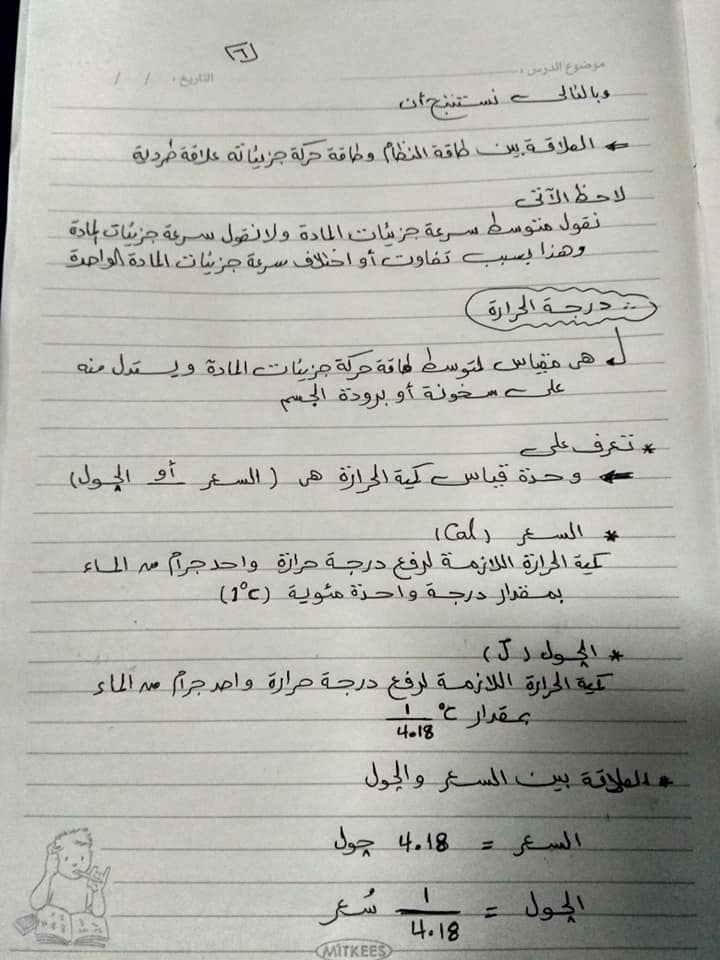 ٦
موضوع الدرس: التاريخ: / /
وبالتالى نستنتج أن
← العلاقة بين طاقة النظام وطاقة حركة جزيئاته علاقة طردية
لاحظ الآتى
نقول متوسط سرعة جزيئات المادة ولا نقول سرعة جزيئات المادة
وهذا بسبب تفاوت أو اختلاف سرعة جزيئات المادة الواحدة
∴ درجة الحرارة
هى مقياس لمتوسط طاقة حركة جزيئات المادة ويستدل منه
على سخونة أو برودة الجسم
* تتعرف على
← وحدة قياس كمية الحرارة هى (السعر أو الچول)
* السعر (Cal)
كمية الحرارة اللازمة لرفع درجة حرارة واحد جرام من الماء
بمقدار درجة واحدة مئوية (1°c)
* الچول (J)
كمية الحرارة اللازمة لرفع درجة حرارة واحد جرام من الماء
بمقدار 1/4.18 °c
* العلاقة بين السعر والچول
السعر = 4.18 چول
الچول = 1/4.18 سُعر
MITKEES